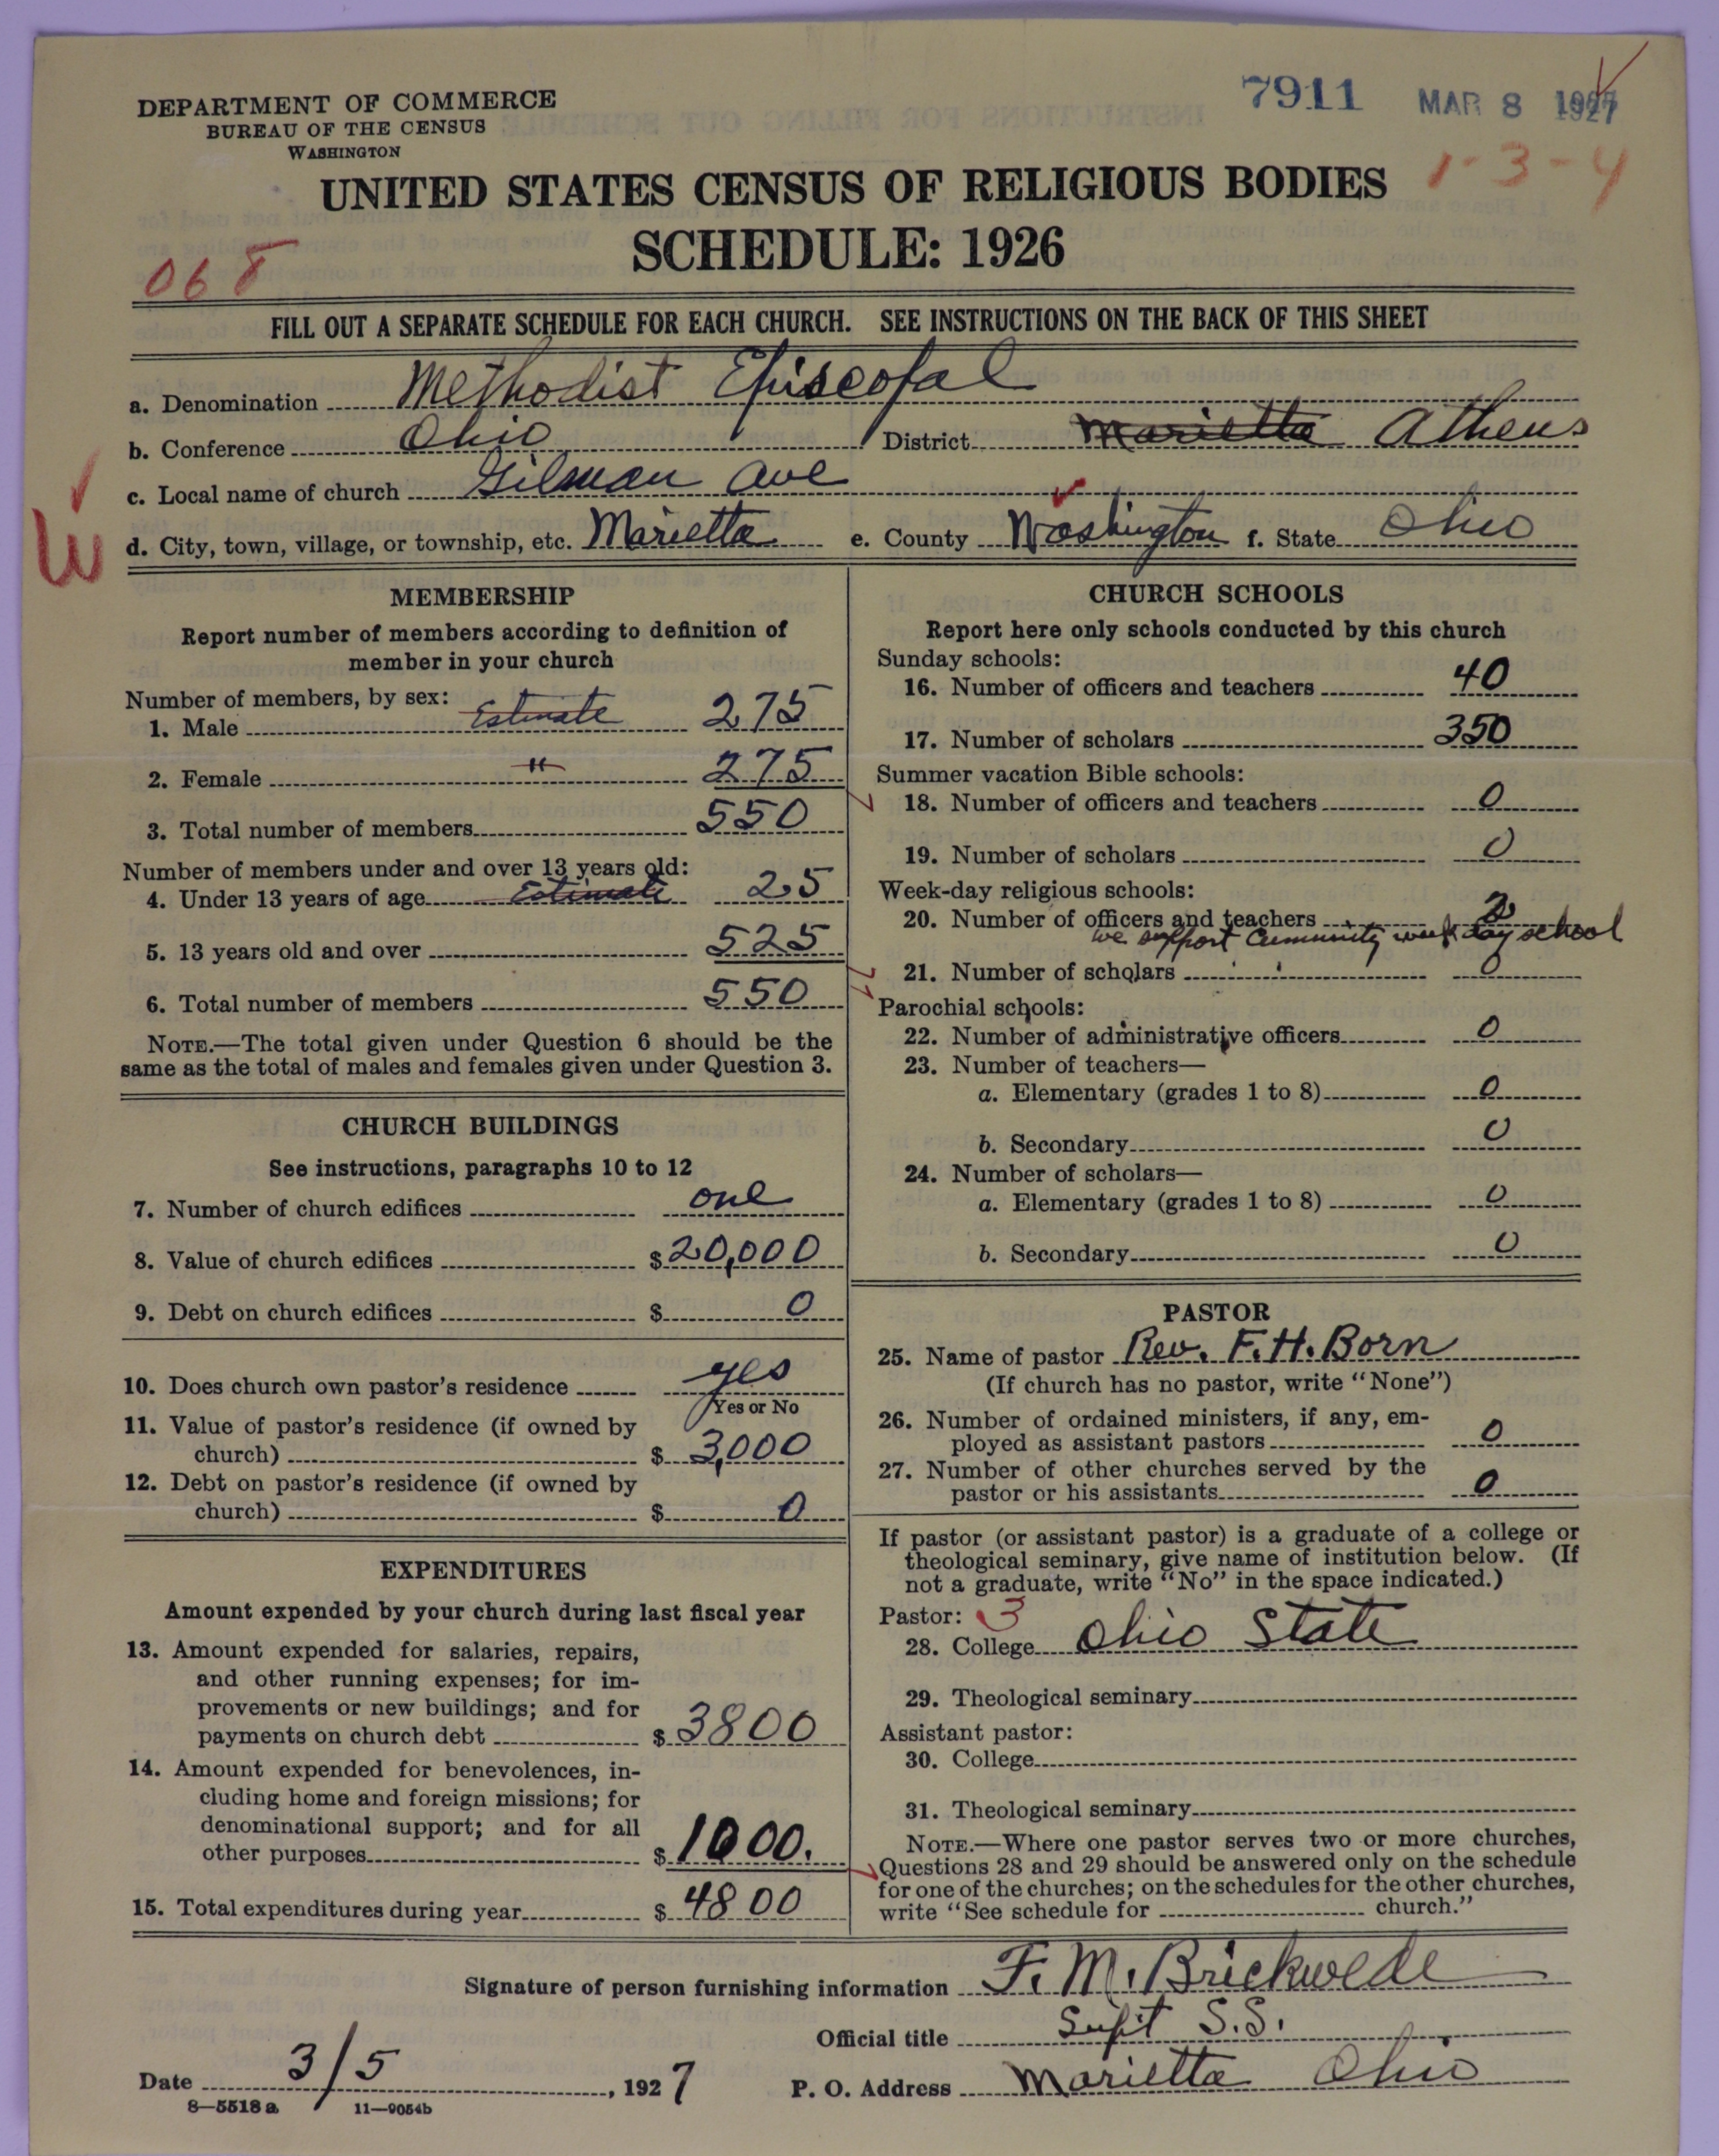 DEPARTMENT OF COMMERCE
BUREAU OF THE CENSUS
WASHINGTON
7911 MAR 8 1927
1-3-4
UNITED STATES CENSUS OF RELIGIOUS BODIES
SCHEDULE: 1926
068
FILL OUT A SEPARATE SCHEDULE FOR EACH CHURCH. SEE INSTRUCTIONS ON THE BACK OF THIS SHEET
a. Denomination Methodist Episcopal
b. Conference Ohio District Marietta Athens
c. Local name of church Gilman Ave
W
d. City, town, village, or township, etc. Marietta e. County Washington f. State Ohio
MEMBERSHIP
Report number of members according to definition of
member in your church
Number of members, by sex:
1. Male Estimate 275
2. Female " 275
3. Total number of members 550
Number of members under and over 13 years old:
4. Under 13 years of age Estimate 25
5. 13 years old and over 525
6. Total number of members 550
NOTE.—The total given under Question 6 should be the
same as the total of males and females given under Question 3.
CHURCH BUILDINGS
See instructions, paragraphs 10 to 12
7. Number of church edifices one
8. Value of church edifices $20,000
9. Debt on church edifices $ 0
10. Does church own pastor's residence yes
Yes or No
11. Value of pastor's residence (if owned by
church) $ 3,000
12. Debt on pastor's residence (if owned by
church) $ 0
EXPENDITURES
Amount expended by your church during last fiscal year
13. Amount expended for salaries, repairs,
and other running expenses; for im-
provements or new buildings; and for
payments on church debt $ 3800
14. Amount expended for benevolences, in-
cluding home and foreign missions; for
denominational support; and for all
other purposes $ 1000.
15. Total expenditures during year $ 4800
CHURCH SCHOOLS
Report here only schools conducted by this church
Sunday schools:
16. Number of officers and teachers 40
17. Number of scholars 350
Summer vacation Bible schools:
18. Number of officers and teachers 0
19. Number of scholars 0
Week-day religious schools:
20. Number of officers and teachers 2
we support Community week day school
21. Number of scholars 0
Parochial schools:
22. Number of administrative officers 0
23. Number of teachers—
a. Elementary (grades 1 to 8) 0
b. Secondary 0
24. Number of scholars—
a. Elementary (grades 1 to 8) 0
b. Secondary 0
PASTOR
25. Name of pastor Rev. F. H. Born
(If church has no pastor, write "None")
26. Number of ordained ministers, if any, em-
ployed as assistant pastors 0
27. Number of other churches served by the
pastor or his assistants 0
If pastor (or assistant pastor) is a graduate of a college or
theological seminary, give name of institution below. (If
not a graduate, write "No" in the space indicated.)
Pastor: 3
28. College Ohio State
29. Theological seminary
Assistant pastor:
30. College
31. Theological seminary
NOTE.—Where one pastor serves two or more churches,
Questions 28 and 29 should be answered only on the schedule
for one of the churches; on the schedules for the other churches,
write "See schedule for church."
Signature of person furnishing information F. M. Brickwede
Official title Supt S.S.
Date 3/5, 1927 P. O. Address Marietta Ohio
8—5518a 11—9054b